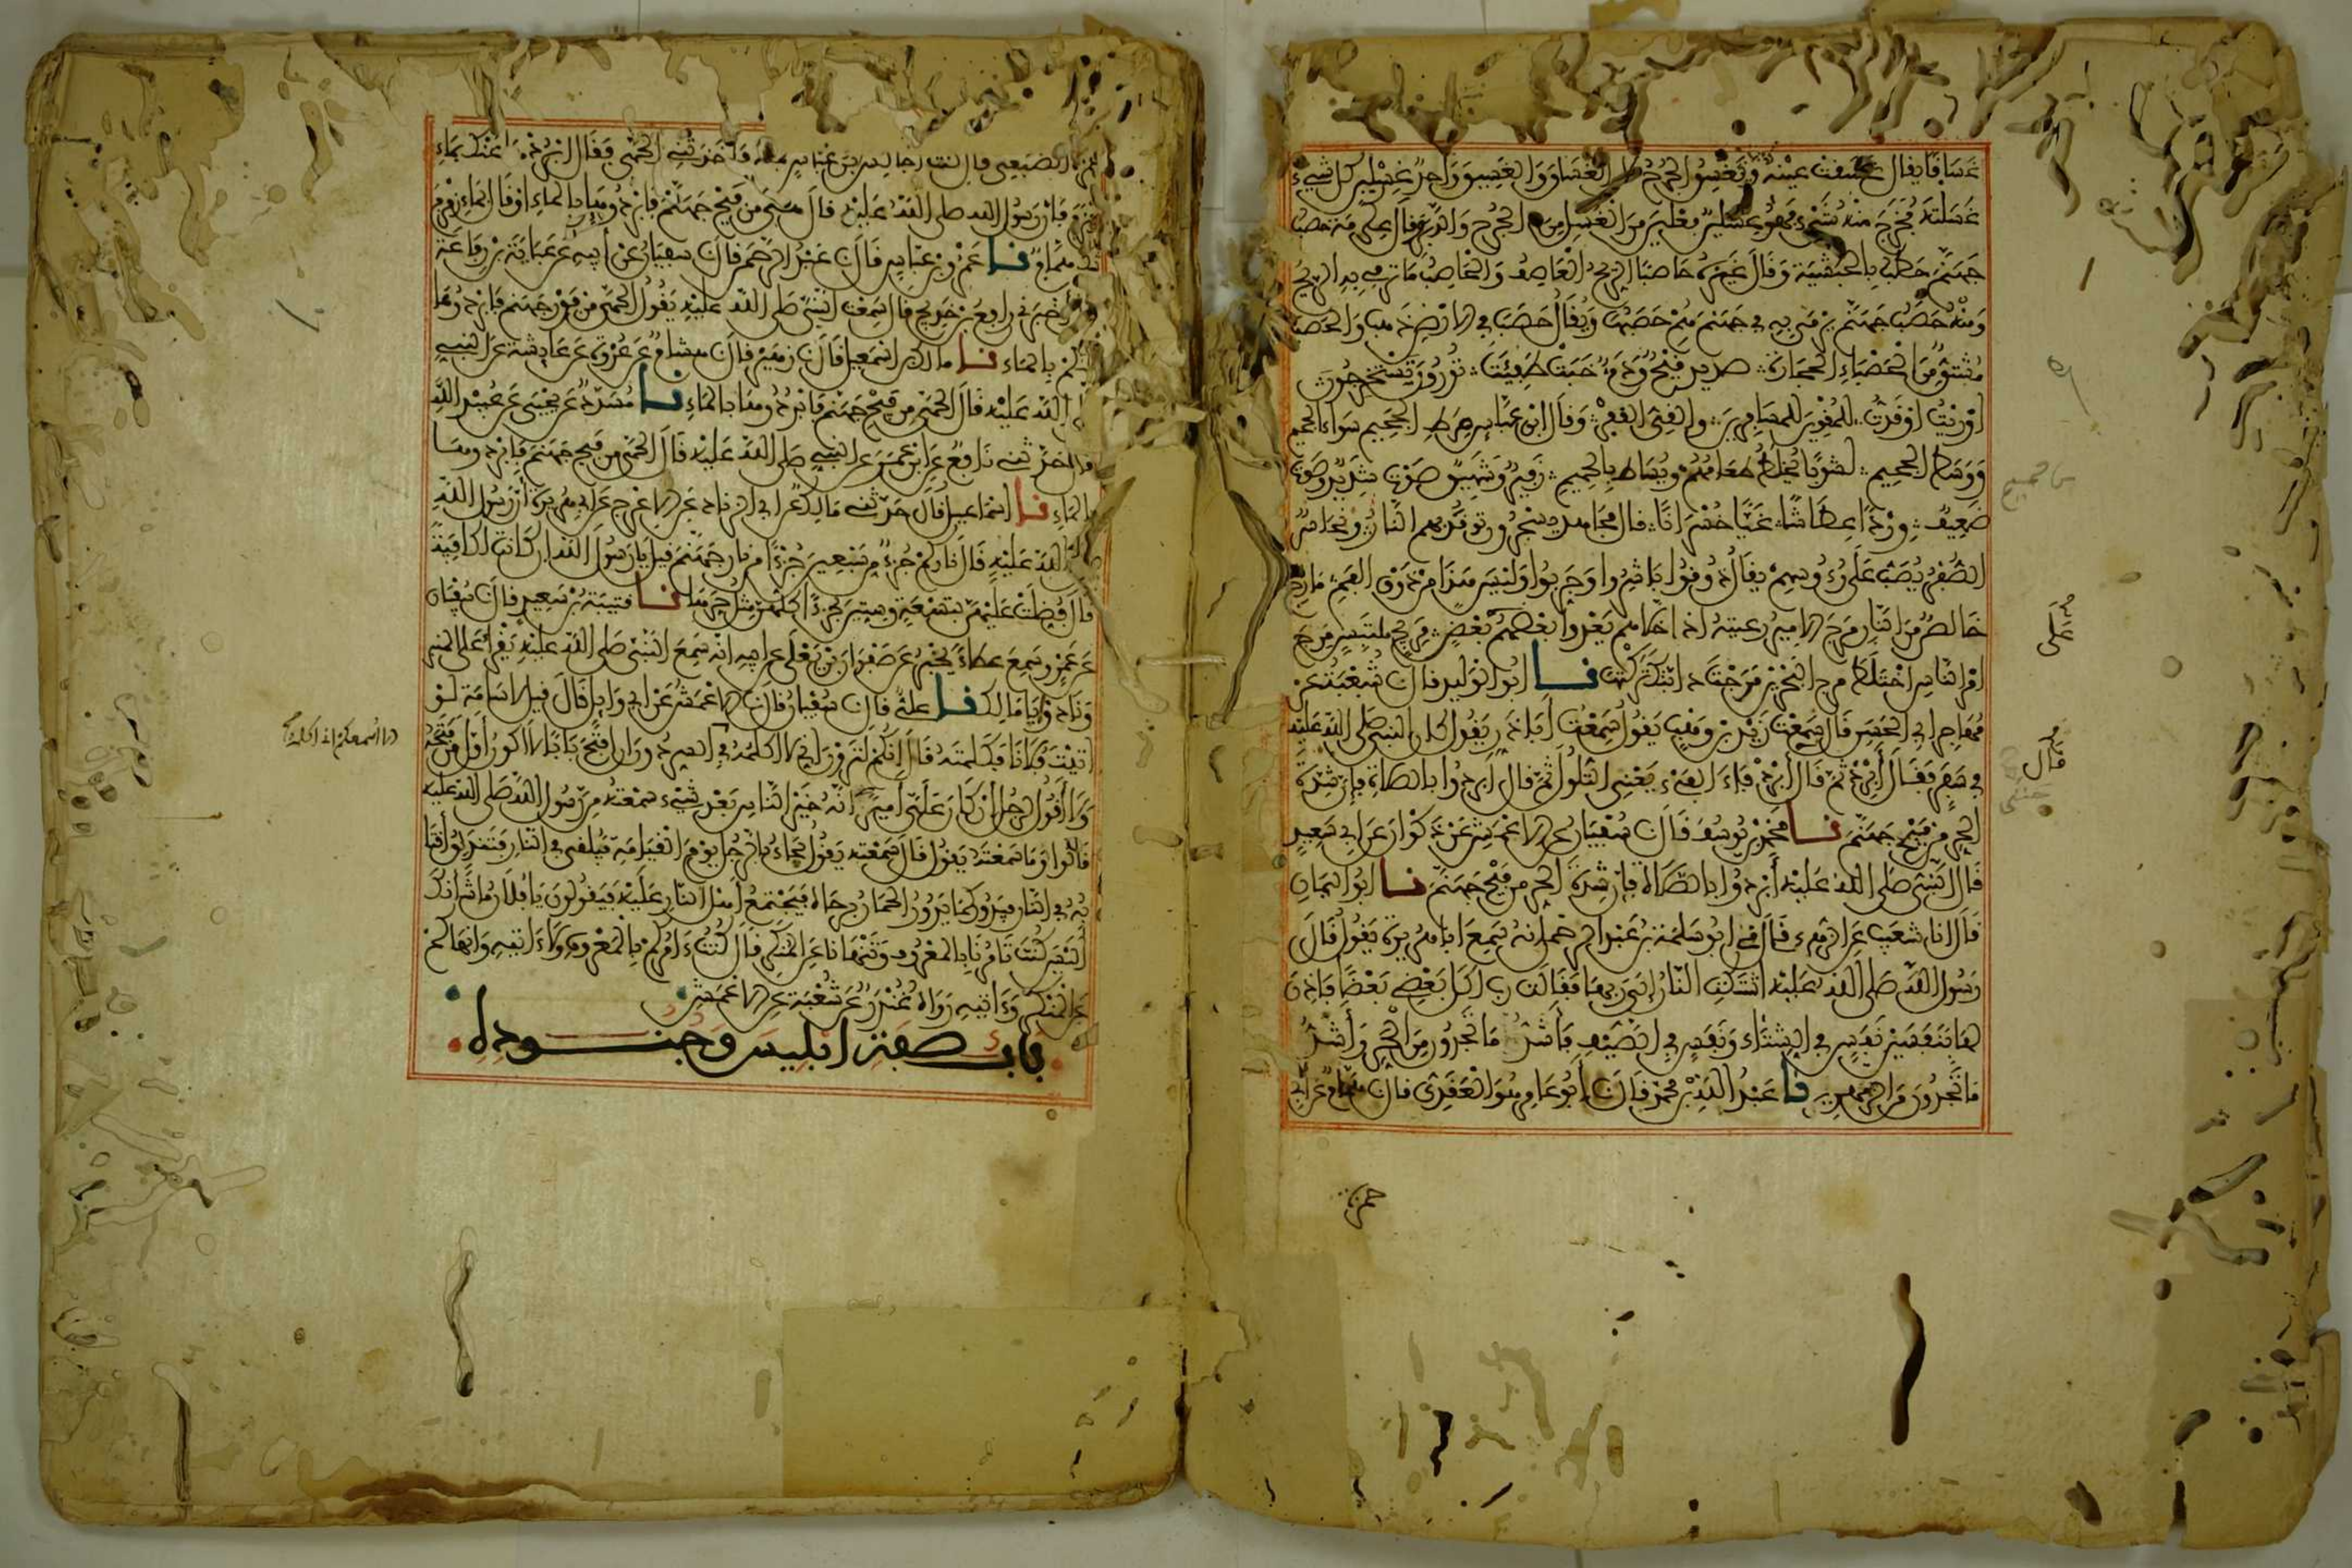 غَسَاقًا يقال غسقت عينه ويغسق الجرح كان الغساق والغسيق واحد غسلين كل شيء
غسلته فخرج منه شيء فهو غسلين فعلين من الغسل من الجرح والدبر قال عكرمة حصب
جهنم حطب بالحبشية وقال غيره حاصبا الريح العاصف والحاصب ما ترمي به الريح
ومنه حصب جهنم يرمى به في جهنم هم حصبها ويقال حصب في الارض ذهب والحصب
مشتق من الحصباء الحجارة صديد قيح ودم خبت طفئت تورون تستخرجون
اوريت اوقدت للمقوين للمسافرين والقي القفر وقال ابن عباس صراط الجحيم سواء الجحيم
ووسط الجحيم لشوبا يخلط طعامهم ويساط بالحميم زفير وشهيق صوت شديد وصوت
ضعيف وردا عطاشا غيا خسرانا قال مجاهد يسجرون توقد بهم النار ونحاس
الصفر يصب على رءوسهم يقال ذوقوا باشروا وجربوا وليس هذا من ذوق الفم مارج
خالص من النار مرج الامير رعيته اذا خلاهم يعدوا بعضهم بعض مريج ملتبس مرج
امر الناس اختلط مرج البحرين مرجت دابتك تركتها نا ابو الوليد قال ن شعبة عن
مهاجر ابي الحسن قال سمعت زيد بن وهب يقول سمعت ابا ذر يقول كان النبي صلى الله عليه
في سفر فقال أبرد ثم قال أبرد فاء الفيء يعني التلول ثم قال ابردوا بالصلاة فإن شدة
الحر من فيح جهنم نا محمد بن يوسف قال ن سفيان عن الاعمش عن ذكوان عن ابي سعيد
قال النبي صلى الله عليه أبردوا بالصلاة فإن شدة الحر من فيح جهنم نا ابو اليمان
قال انا شعيب عن الزهري قال ني ابو سلمة بن عبد الرحمن انه سمع ابا هريرة يقول قال
رسول الله صلى الله عليه اشتكت النار إلى ربها فقالت رب اكل بعضي بعضا فاذن
لها بنفسين نفس في الشتاء ونفس في الصيف فأشد ما تجدون من الحر وأشد
ما تجدون من الزمهرير نا عبد الله بن محمد قال ن أبو عامر هو العقدي قال ن همام عن ابي
على
قال
حمزة
جمرة الضبعي قال كنت اجالس ابن عباس بمكة فاخذتني الحمى فقال ابردها عنك بماء
زمزم فان رسول الله صلى الله عليه قال هي من فيح جهنم فابردوها بالماء او قال بماء زمزم
شك همام نا عمرو بن عباس قال ن عبد الرحمن قال ن سفيان عن أبيه عن عباية بن رفاعة
قال أخبرني رافع بن خديج قال سمعت النبي صلى الله عليه يقول الحمى من فور جهنم فابردوها
عنكم بالماء نا مالك بن اسمعيل قال ن زهير قال ن هشام عن عروة عن عايشة عن النبي
صلى الله عليه قال الحمى من فيح جهنم فابردوها بالماء نا مسدد عن يحيى عن عبيد الله
قال حدثني نافع عن ابن عمر عن النبي صلى الله عليه قال الحمى من فيح جهنم فابردوها
بالماء نا اسماعيل قال حدثني مالك عن ابي الزناد عن الاعرج عن ابي هريرة أن رسول الله
صلى الله عليه قال ناركم جزء من سبعين جزءا من نار جهنم قيل يا رسول الله ان كانت لكافية
قال فضلت عليهن بتسعة وستين جزءا كلهن مثل حرها نا قتيبة بن سعيد قال ن سفيان
عن عمرو سمع عطاء يخبر عن صفوان بن يعلى عن ابيه انه سمع النبي صلى الله عليه يقرأ على المنبر
ونادوا يا مالك نا علي قال ن سفيان قال ن الاعمش عن ابي وايل قال قيل لاسامة لو
اتيت فلانا فكلمته قال إنكم لترون اني لا اكلمه في السر دون ان افتح بابا لا اكون اول من فتحه
ولا أقول لرجل ان كان علي أميرا انه خير الناس بعد شيء سمعته من رسول الله صلى الله عليه
قالوا وما سمعته يقول قال سمعته يقول يجاء بالرجل يوم القيامة فيلقى في النار فتندلق أقتا
به في النار فيدور كما يدور الحمار برحاه فيجتمع أهل النار عليه فيقولون يا فلان ما شأنك
أليس كنت تامرنا بالمعروف وتنهانا عن المنكر قال كنت ءامركم بالمعروف ولا ءاتيه وانهاكم
عن المنكر وءاتيه رواه غندر عن شعبة عن الاعمش
باب صفة ابليس وجنوده